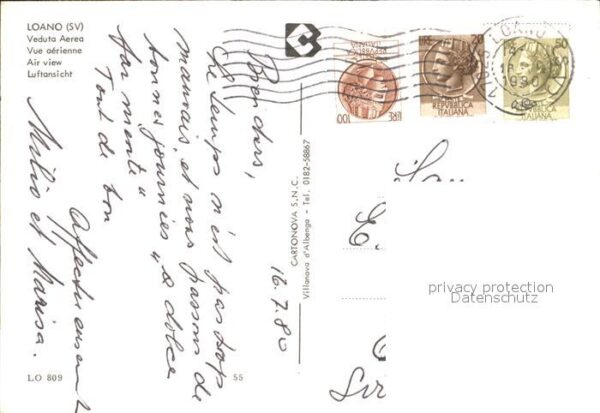 LOANO (SV)
Veduta Aerea
Vue aérienne
Air view
Luftansicht
LO 809
55
CARTONOVA S.N.C.
Villanova d'Albenga - Tel. 0182-58867
16.7.80
Bien chers,
le temps n'est pas trop
mauvais et nous passons de
bonnes journées "a dolce
far niente"
Tout de bon
Affectueusement
Milio et Marisa.
LIRE 100
REPUBBLICA
ITALIANA
ITALIANA
LOANO
privacy protection
Datenschutz